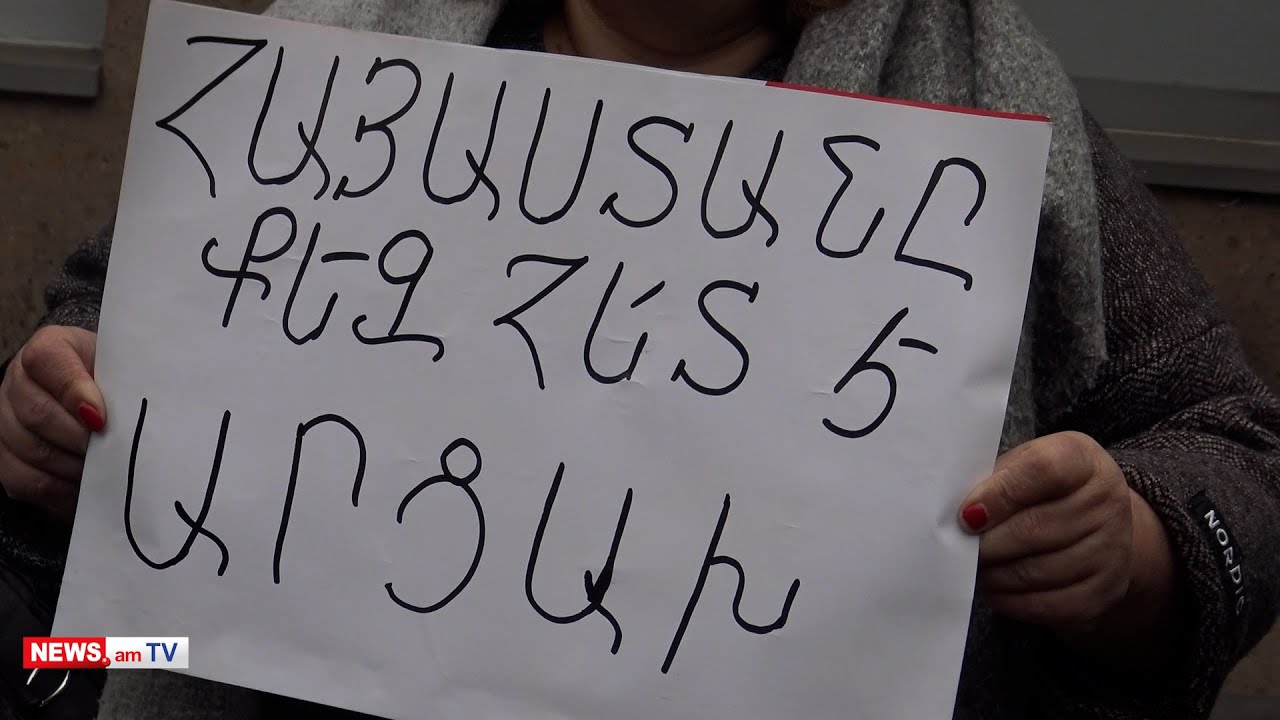 ՀԱՅԱՍՏԱՆԸ
ՔԵԶ ՀԵՏ Է
ԱՐՑԱԽ
NORDIC
NEWS.am TV